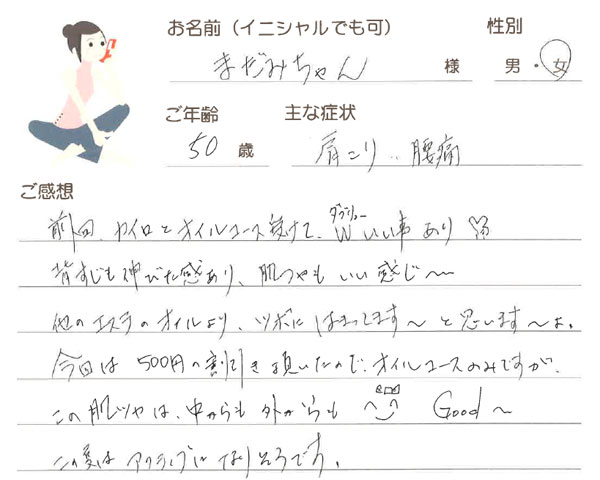 お名前（イニシャルでも可） 性別
まだみちゃん 様 男・女
ご年齢 主な症状
50 歳 肩こり、腰痛
ご感想
前回、カイロとオイルコース受けて、W いい事あり♡
ダブリュー
背すじも伸びた感あり、肌つやもいい感じ〜
他のエステのオイルより、ツボにはまってます〜と思います〜よ。
今回は500円の割引き頂いたので、オイルコースのみですが、
この肌ツヤは、中からも外からも Good〜
この夏はアクティブになりそうです。